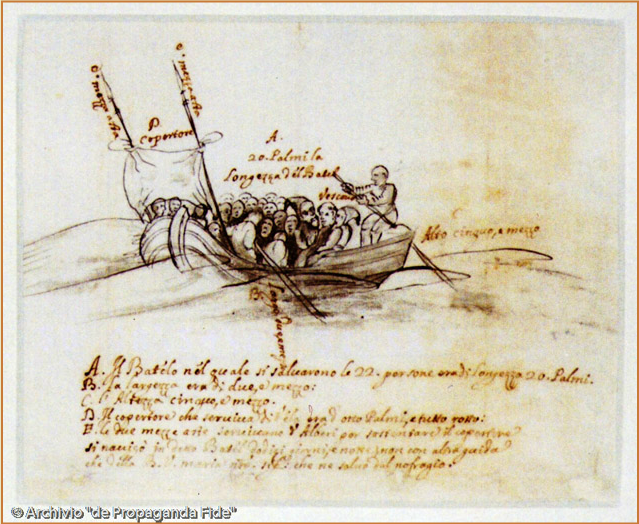 Remo e
mezza asta
mezza asta
D.
Copertore
A.
20. Palmi la
Longezza del Batelo
Vescovo
C
Alto cinque, e mezzo
B.
A. Il Batélo nél quale si salvarono le 22. persone era di longezza 20. Palmi.
B. La largezza era di due, e mezzo:
C. l'Altezza cinque, e mezo.
D. Il copertore che serviva di Vela era d'otto Palmi, e tutto rosso:
E. le due mezze aste servivano d'Alberi per sostentare il copertore
si navigò in detto Batél dodici giorni, e notte, non con altra guida
che della B. V. Maria che ne salvò dal nofragio.
© Archivio "de Propaganda Fide"